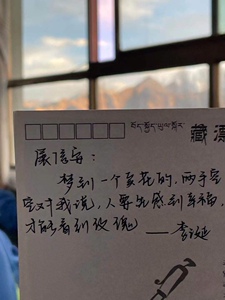 藏漂
展信安：
梦到一个卖花的，两手空
空对我说，人要先感到幸福，
才能看到玫瑰 ——李诞